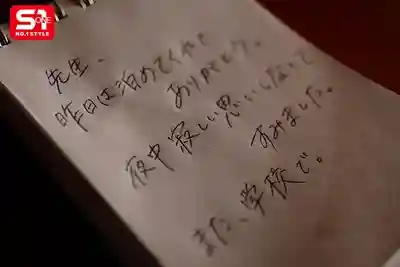 S1
ONE
NO.1 STYLE
先生、
昨日は泊めてくれて
ありがとう。
夜中寂しい思いしないで
すみました。
また、学校で。